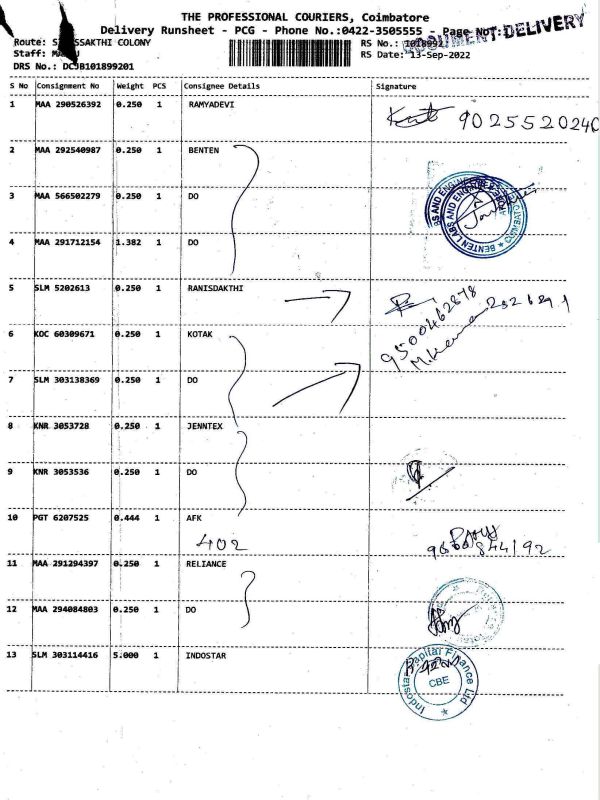 THE PROFESSIONAL COURIERS, Coimbatore
Delivery Runsheet - PCG - Phone No.:0422-3505555 - Page No:
DOCUMENT DELIVERY
Route: SAKTHI COLONY
RS No.: 1018992
Staff:
RS Date: 13-Sep-2022
DRS No.: DCJB101899201
S No Consignment No Weight PCS Consignee Details Signature
1 MAA 290526392 0.250 1 RAMYADEVI
9025520240
2 MAA 292540987 0.250 1 BENTEN
BENTEN LABS AND ENGINEERS
COIMBATORE
3 MAA 566502279 0.250 1 DO
4 MAA 291712154 1.382 1 DO
5 SLM 5202613 0.250 1 RANISDAKTHI
9500462878
6 KOC 60309671 0.250 1 KOTAK
7 SLM 303138369 0.250 1 DO
8 KNR 3053728 0.250 1 JENNTEX
9 KNR 3053536 0.250 1 DO
10 PGT 6207525 0.444 1 AFK
402
11 MAA 291294397 0.250 1 RELIANCE
12 MAA 294084803 0.250 1 DO
13 SLM 303114416 5.000 1 INDOSTAR
Indostar Capital Finance Ltd
CBE